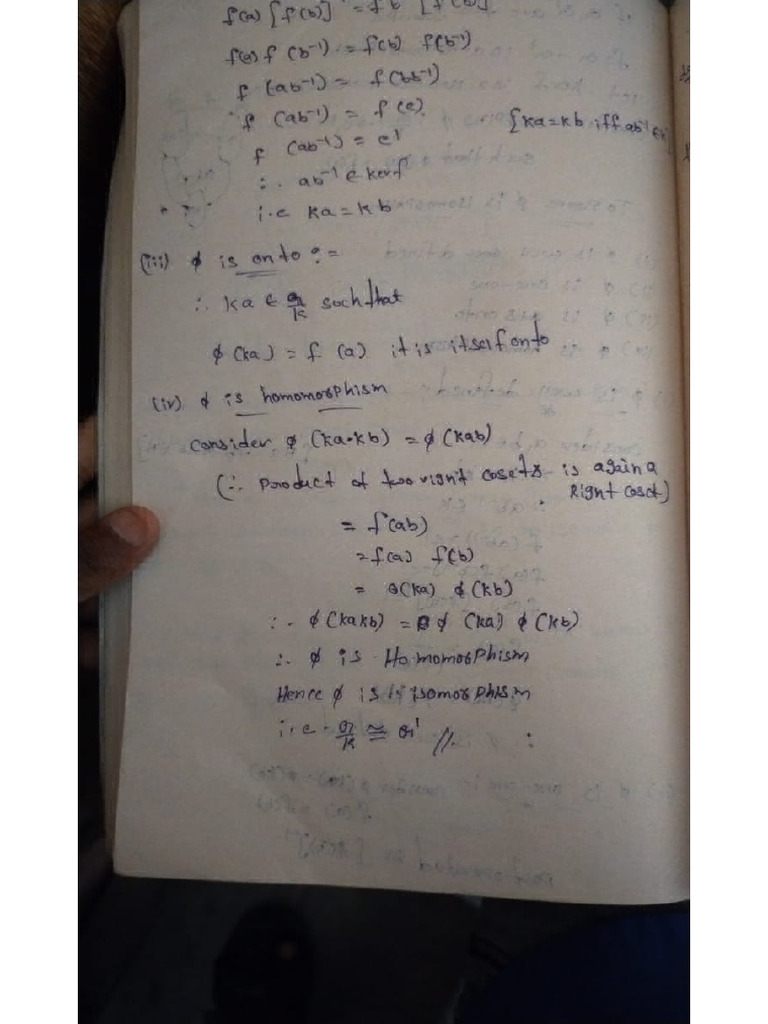 f(a) [f(b)]⁻¹ = fb [f(b)]⁻¹
f(a) f(b⁻¹) = f(b) f(b⁻¹)
f (ab⁻¹) = f(bb⁻¹)
f (ab⁻¹) = f(e) {ka=kb iff ab⁻¹ ∈ k}
f (ab⁻¹) = e'
∴ ab⁻¹ ∈ kerf
i.e ka = kb
(iii) ϕ is onto :=
∴ ka ∈ G/k such that
ϕ(ka) = f(a) it is itself onto
(iv) ϕ is homomorphism
consider ϕ(ka·kb) = ϕ(kab)
(∴ product of two right cosets is again a Right coset)
= f(ab)
= f(a) f(b)
= ϕ(ka) ϕ(kb)
∴ ϕ(kakb) = ϕ(ka) ϕ(kb)
∴ ϕ is Homomorphism
Hence ϕ is isomorphism
i.e. G/k ≅ G' //.